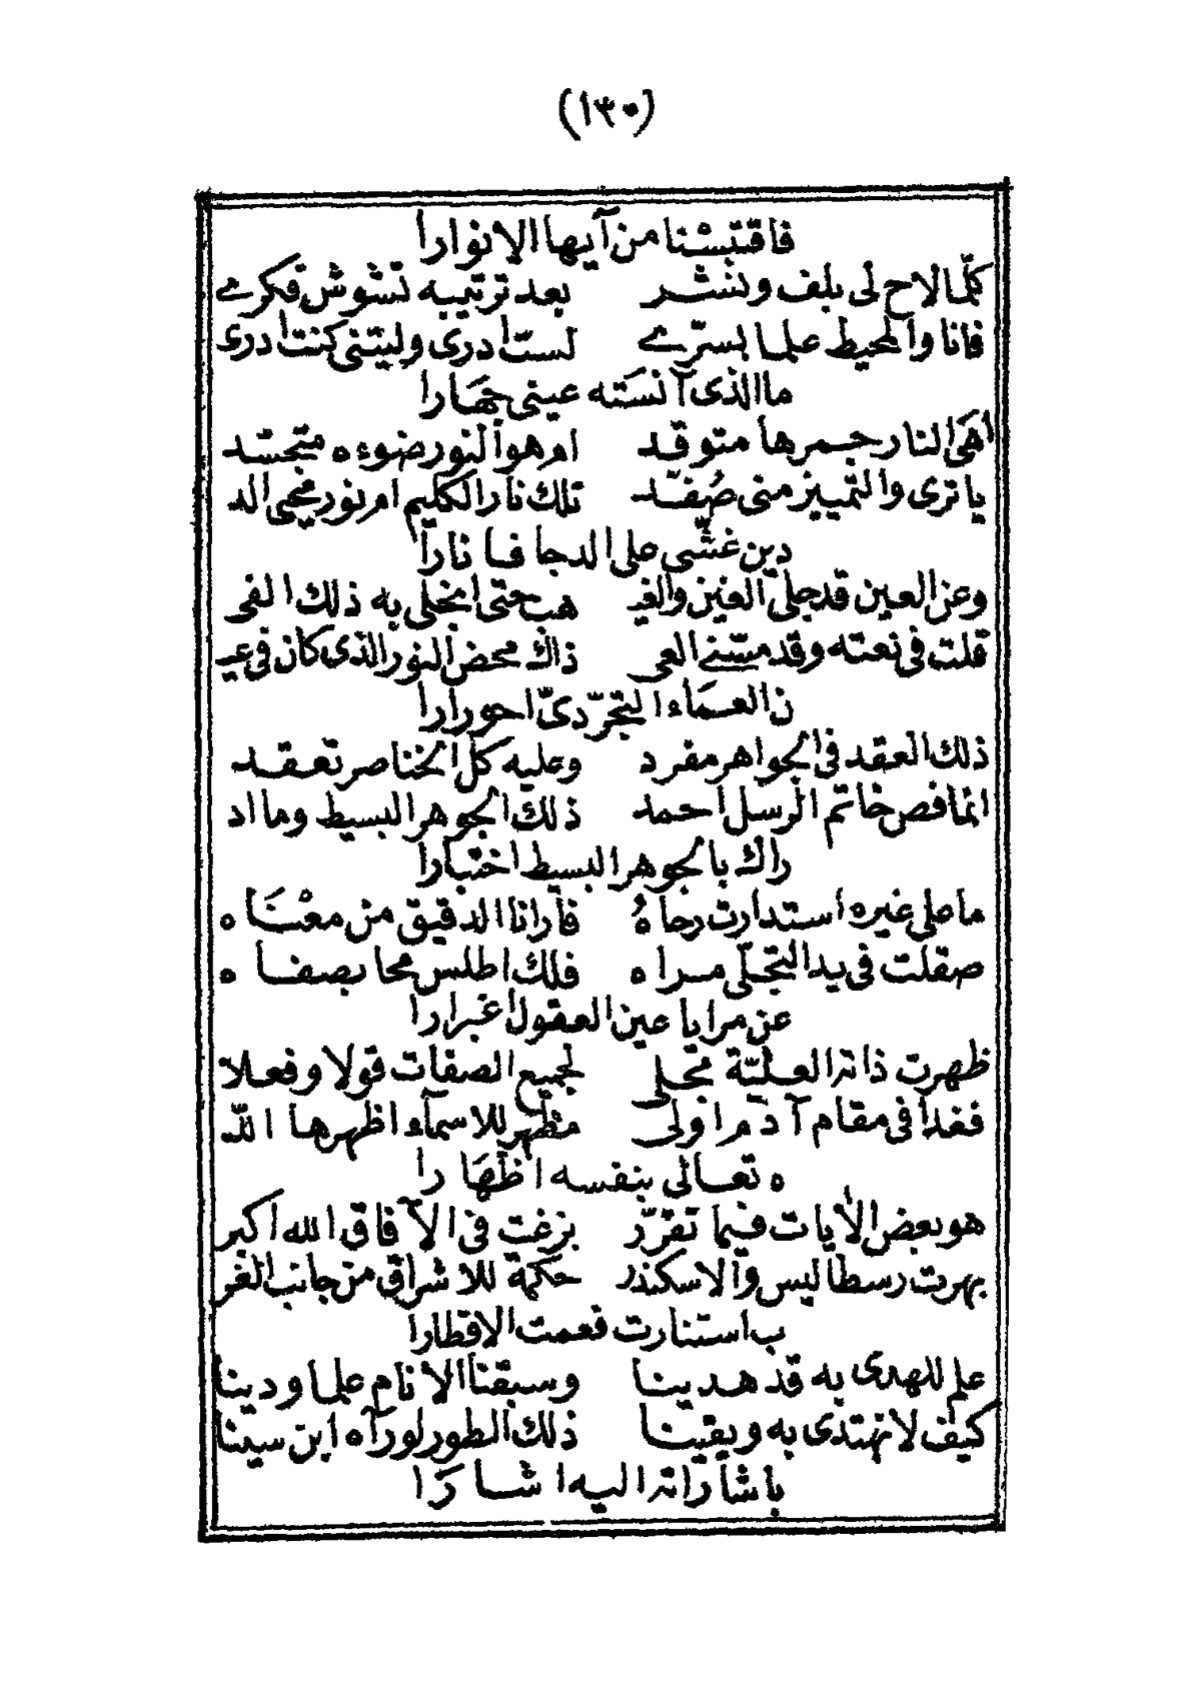 (١٣٠)
فاقتبسنا من آيها الانوارا
كلما لاح لى بلف ونشر بعد ترتيبه تشوش فكرے
فانا والمحيط علما بسرّے لست ادرى وليتنى كنت ادرى
ما الذى آنسته عينى جهارا
اهى النار جمرها متوقد ام هو النور ضوءه متجسّد
يا ترى والتمييز منى صُفّد تلك نار الكليم ام نور محيى الد
دين غشّى على الدجا فانارا
وعن العين قد جلىّ الغين والغيـ ـهب حتى انجلى به ذلك الفى
قلت فى نعته وقد مسّنے العى ذاك محض النور الذى كان فى عيـ
ن العمَاء التجرّدىّ احورارا
ذلك العقد فى الجواهر مفرد وعليه كل الخناصر تعقد
انما فص خاتم الرسل احمد ذلك الجوهر البسيط وما اد
راك بالجوهر البسيط اختبارا
ما على غيره استدارت رحاهُ فارانا الدقيق من معْنَاه
صقلت فى يد التجلّى مراه فلك اطلس محا بصفاه
عن مرايا عين العقول اغبرارا
ظهرت ذاته العليّة مجلى لجميع الصفات قولا وفعلا
فغدا فى مقام آدم اولى مظهر للاسمآء اظهرها اللّـ
ه تعالى بنفسه اظهَارا
هو بعض الآيات فيما تقرّر بزغت فى الآفاق الله اكبر
بهرت رسطاليس والاسكندر حكمة للاشراق من جانب الغر
ب استنارت فعمت الاقطارا
علم للهدى به قد هدينا وسبقنا الانام علما ودينا
كيف لا نهتدى به ويقينا ذلك الطور لو رآه ابن سينا
باشاراته اليه اشارَا